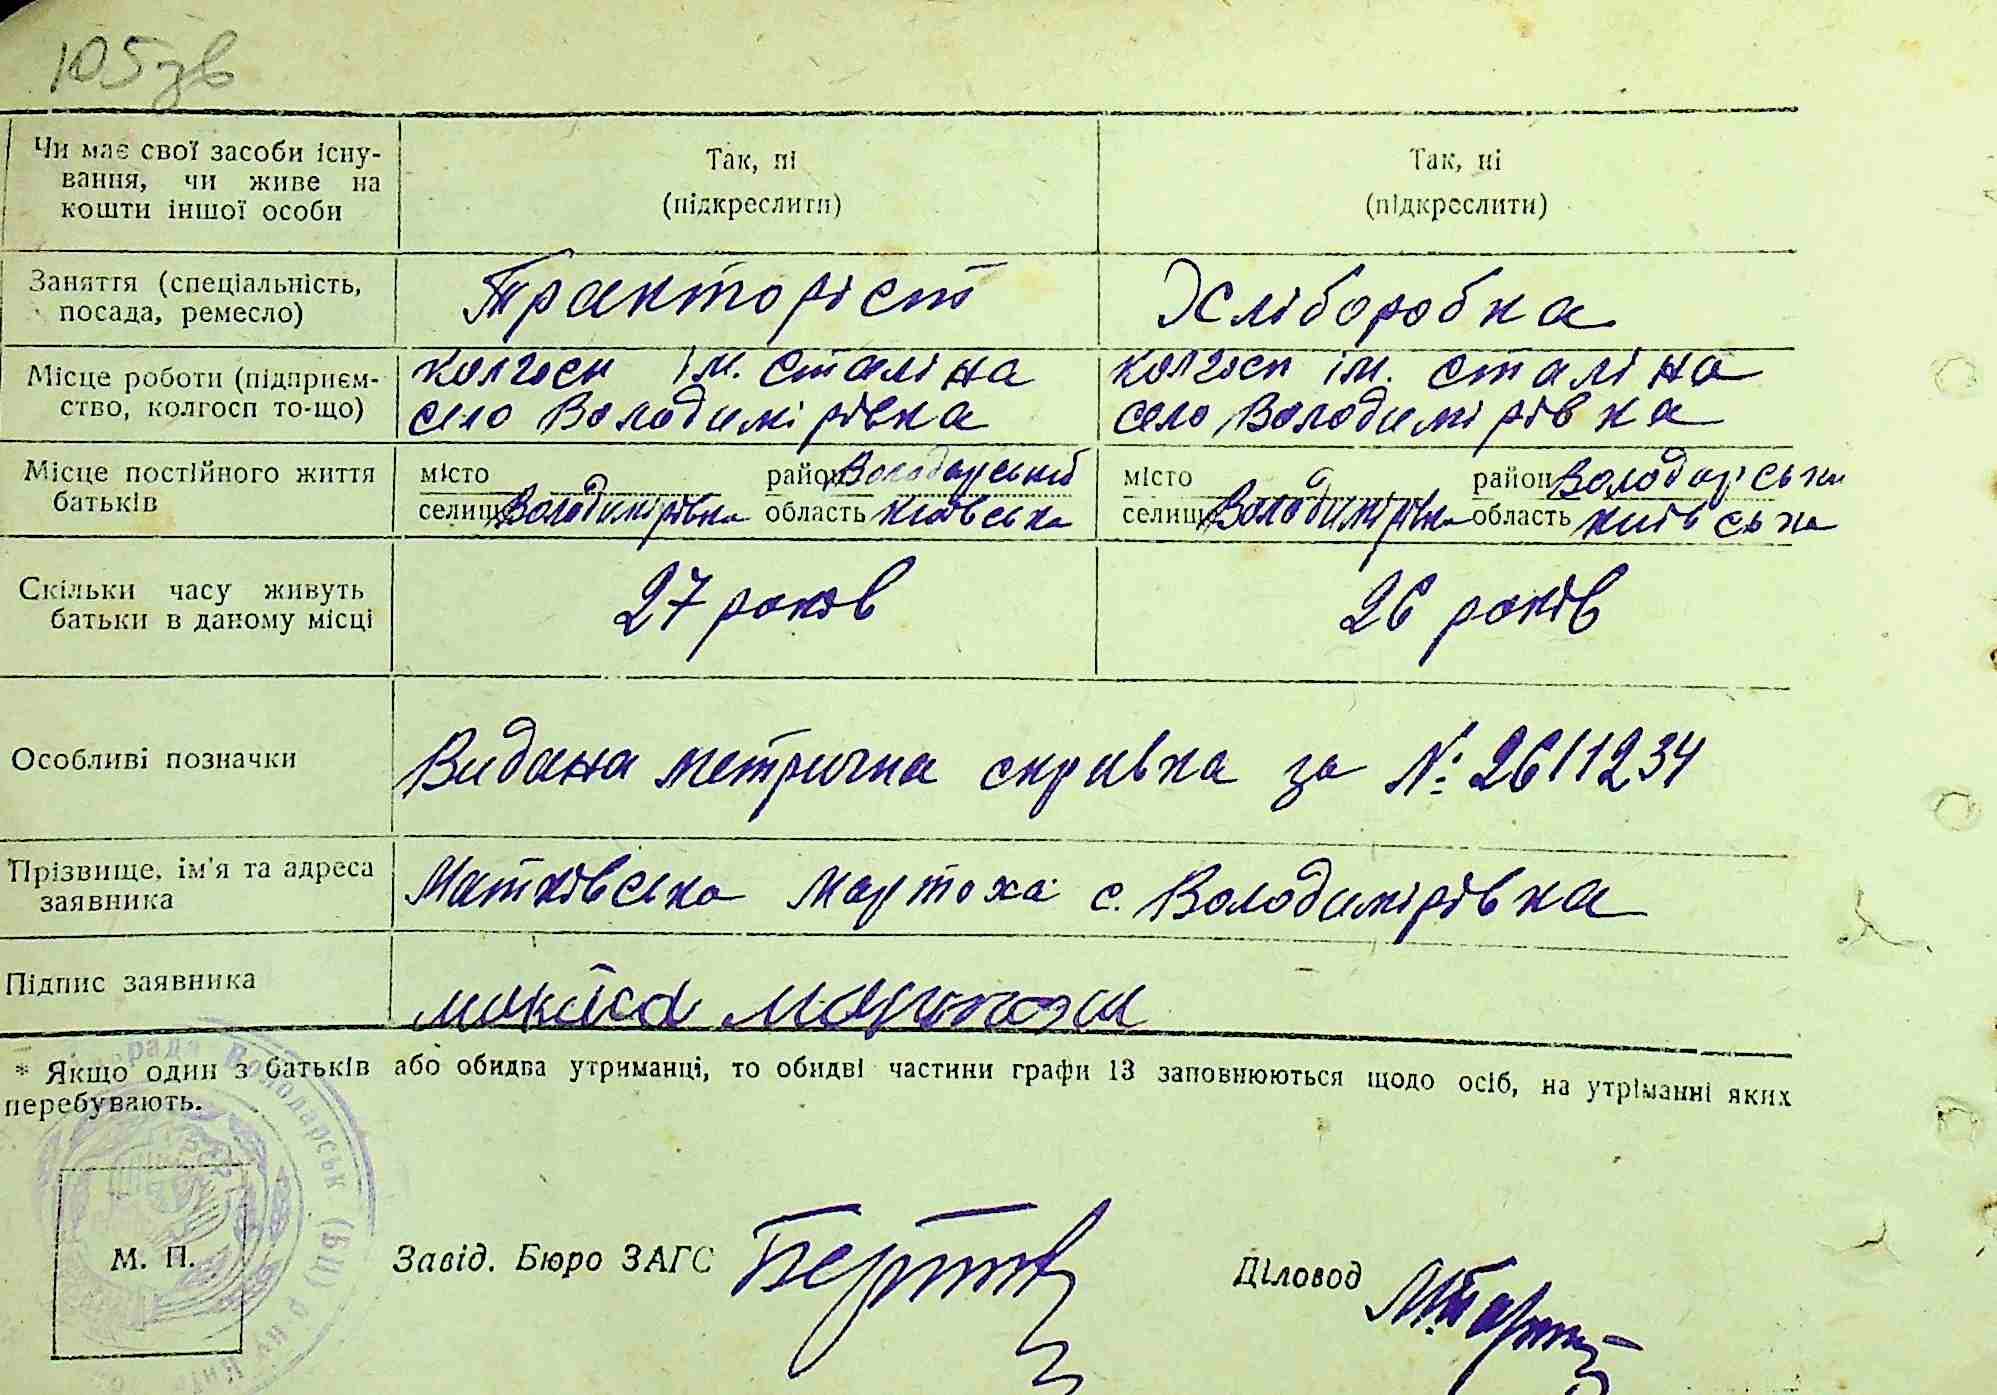 105 зв
Чи має свої засоби існу-
вання, чи живе на
кошти іншої особи
Так, ні
(підкреслити)
Так, ні
(підкреслити)
Заняття (спеціальність,
посада, ремесло)
Тракторіст
Хліборобка
Місце роботи (підприєм-
ство, колгосп то-що)
колгосп ім. Сталіна
село Володимірівка
колгосп ім. Сталіна
село Володимірівка
Місце постійного життя
батьків
місто район Володарський
селище Володимірівка область Київська
місто район Володарськи
селище Володимірівка область Київська
Скільки часу живуть
батьки в даному місці
27 років
26 років
Особливі позначки
Видана метрична справка за №: 2611234
Прізвище, ім'я та адреса
заявника
Матківська Мартоха с. Володимірівка
Підпис заявника
* Якщо один з батьків або обидва утриманці, то обидві частини графи 13 заповнюються щодо осіб, на утріманні яких
перебувають.
Володарськ (БЦ)
М. П.
Завід. Бюро ЗАГС
Діловод